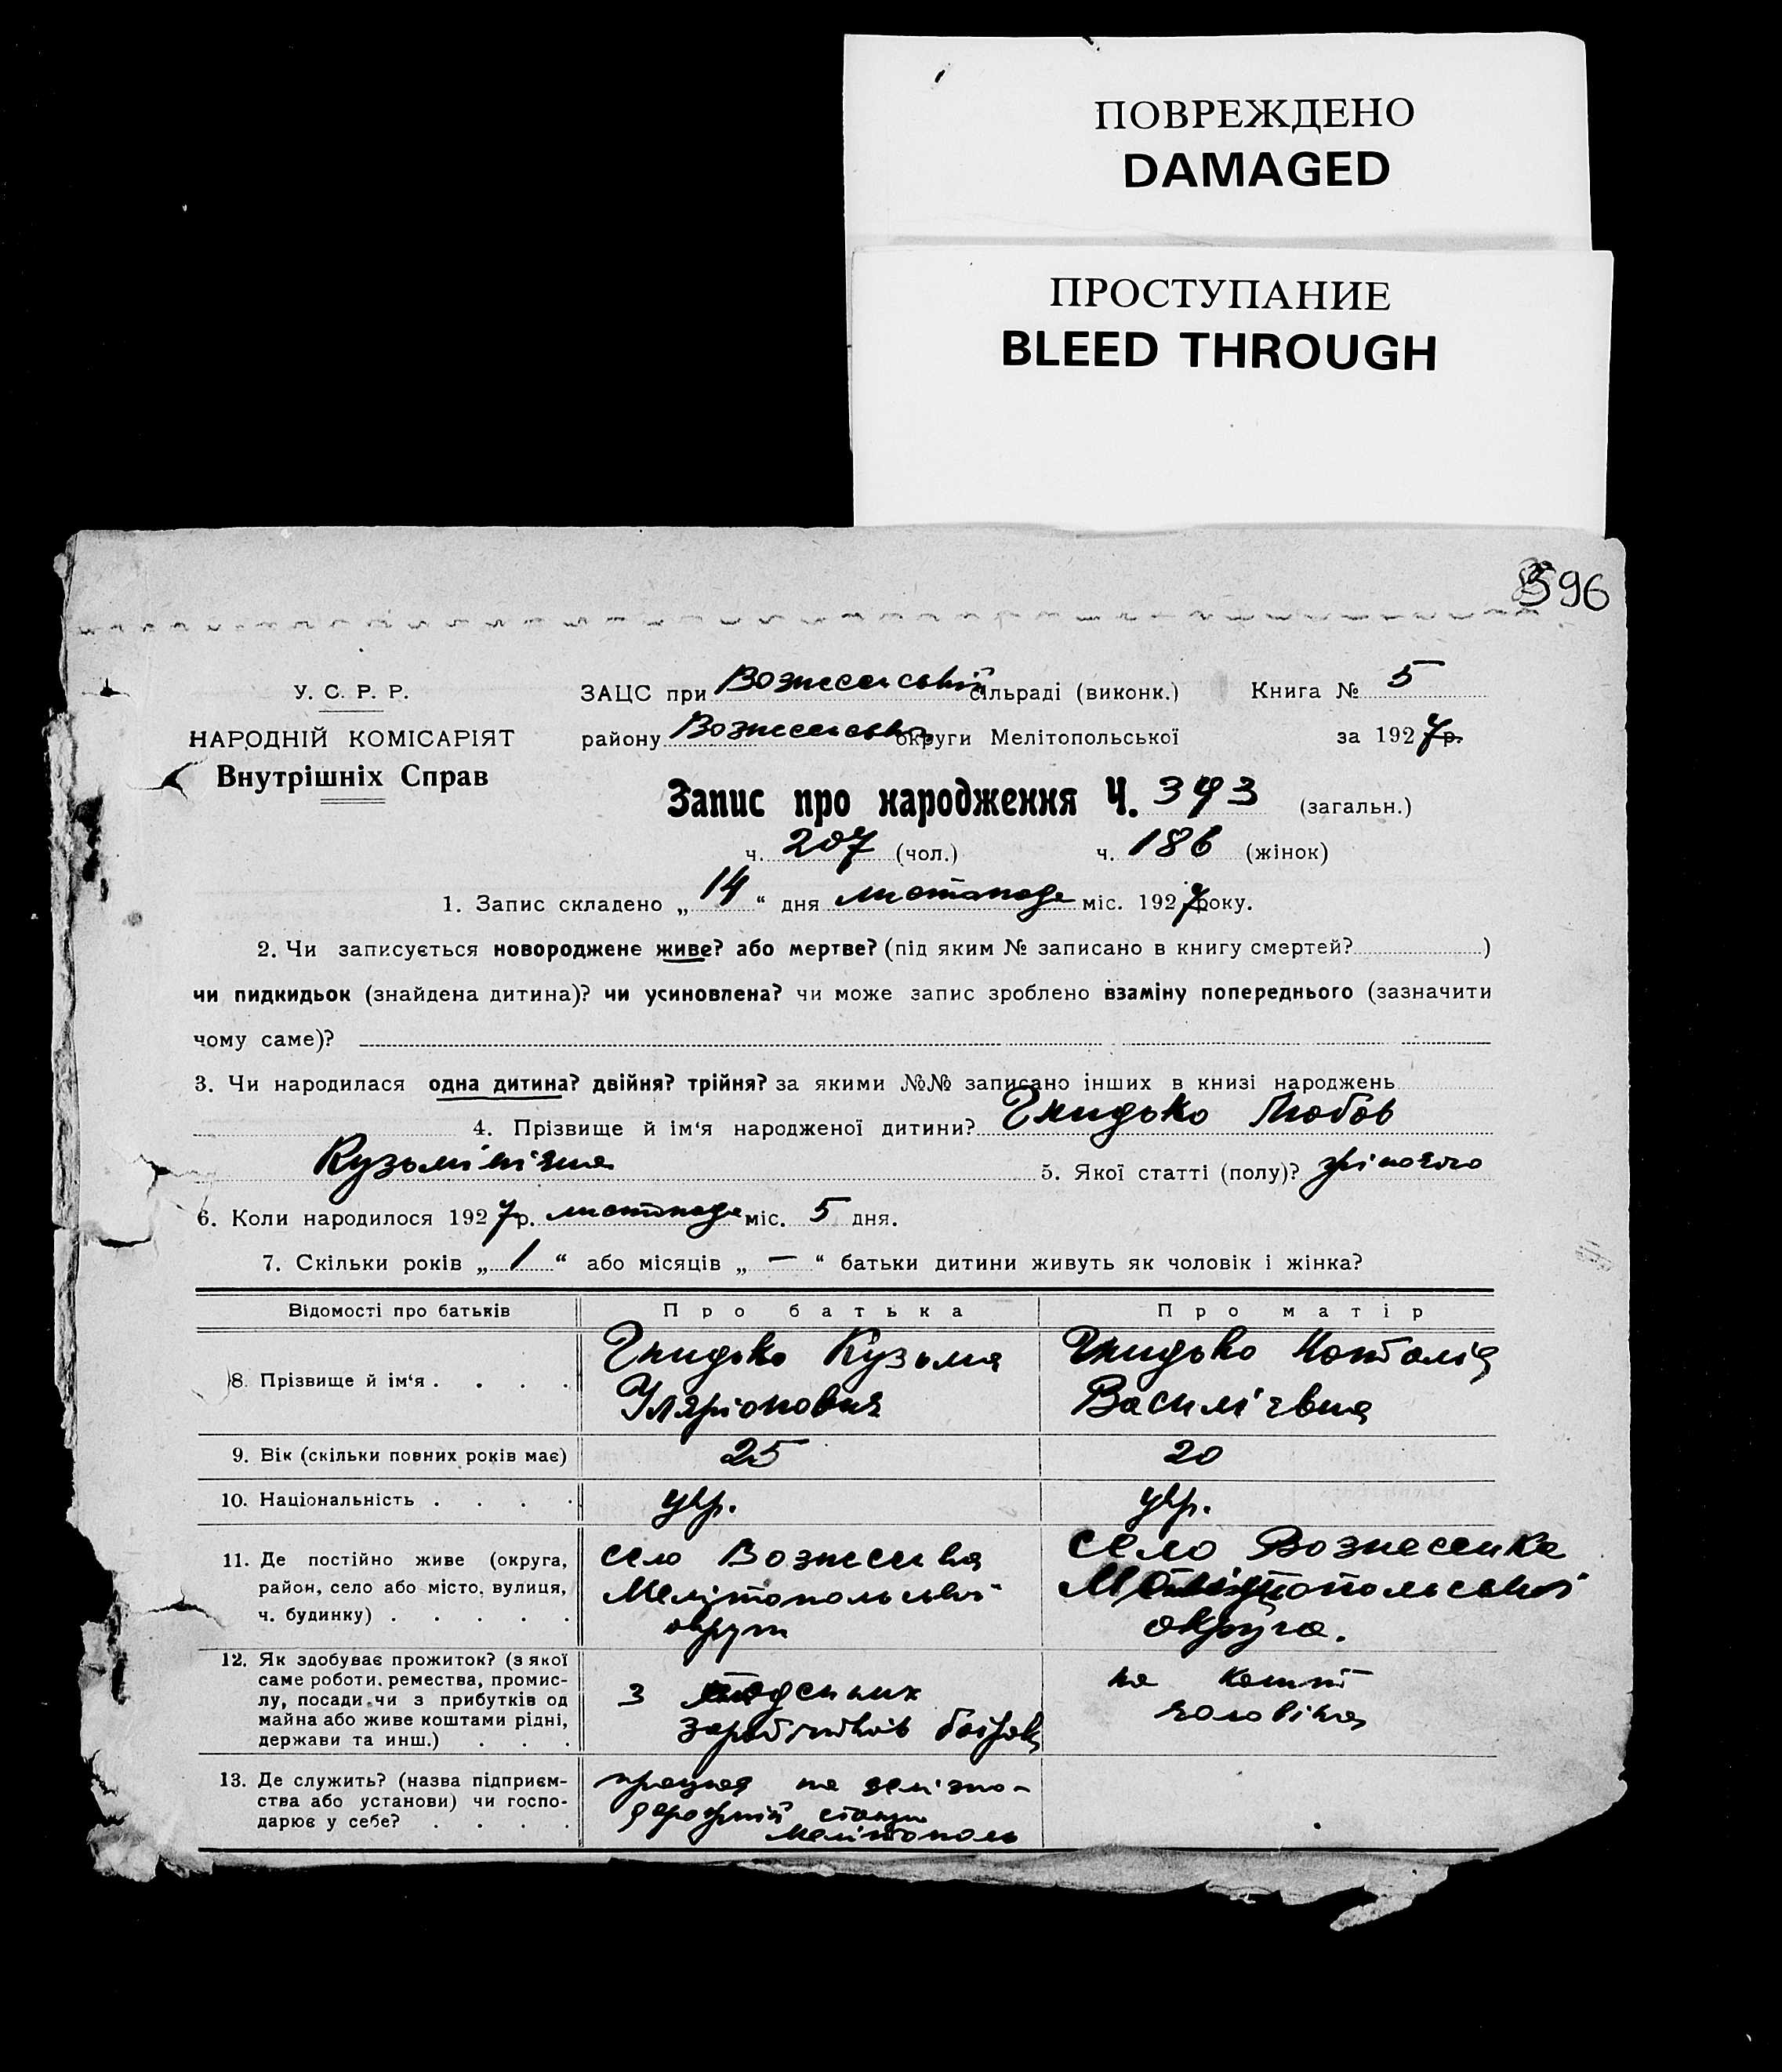 ПОВРЕЖДЕНО
DAMAGED
ПРОСТУПАНИЕ
BLEED THROUGH
596
У. С. Р. Р.
НАРОДНІЙ КОМІСАРІЯТ
Внутрішніх Справ
ЗАЦС при Вознесенській сільраді (виконк.) Книга № 5
району Вознесенсько округи Мелітопольської за 1927 р.
Запис про народження Ч. 393 (загальн.)
ч. 207 (чол.) ч. 186 (жінок)
1. Запис складено „ 14 “ дня листопада міс. 1927 року.
2. Чи записується новороджене живе? або мертве? (під яким № записано в книгу смертей? )
чи пидкидьок (знайдена дитина)? чи усиновлена? чи може запис зроблено взаміну попереднього (зазначити
чому саме)?
3. Чи народилася одна дитина? двійня? трійня? за якими №№ записано інших в книзі народжень
4. Прізвище й ім‘я народженої дитини? Гнидько Любов
Кузьмінічна 5. Якої статті (полу)? жіночого
6. Коли народилося 1927 р. листопада міс. 5 дня.
7. Скільки років „ 1 “ або місяців „ — “ батьки дитини живуть як чоловік і жінка?
Відомості про батьків Про батька Про матір
8. Прізвище й ім‘я . . . . Гнидько Кузьма Гнидько Наталія
Іляріонович Василівна
9. Вік (скільки повних років має) 25 20
10. Національність . . . . укр. укр.
11. Де постійно живе (округа, район, село або місто, вулиця, ч. будинку) . . . . .
село Вознесенка
Мелітопольської
округи
село Вознесенка
Мелітопольської
округа.
12. Як здобуває прожиток? (з якої
саме роботи, ремества, промис-
лу, посади чи з прибутків од
майна або живе коштами рідні,
держави та инш.) . . .
з поденних
заробітків
на кошт
чоловіка
13. Де служить? (назва підприєм-
ства або установи) чи госпо-
дарює у себе? . . . .
працює на залізно-
дорожній станції
Мелітополь